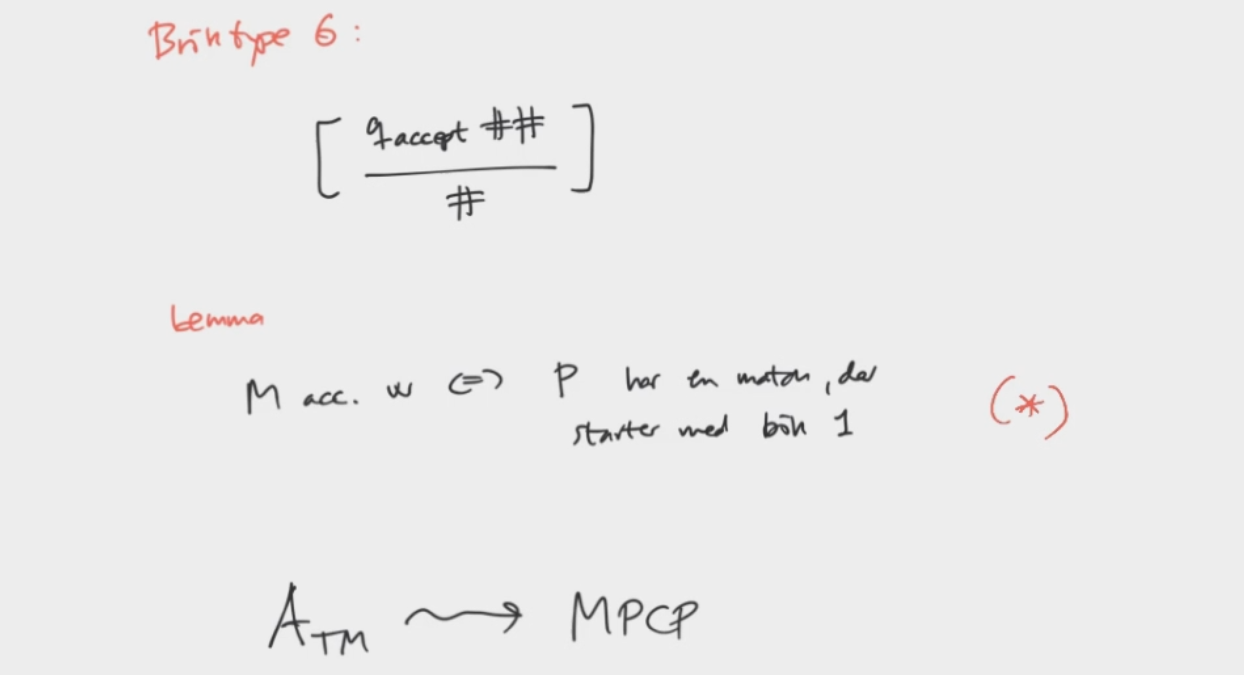 Briktype 6:
[ q accept ##
# ]
Lemma
M acc. w <=> P har en match, der
starter med brik 1
(*)
A TM ⇝ MPCP